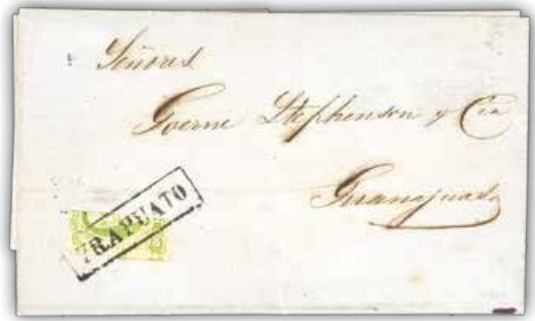 Señores
Goerne Stephenson y Cia
Guanajuato
IRAPUATO